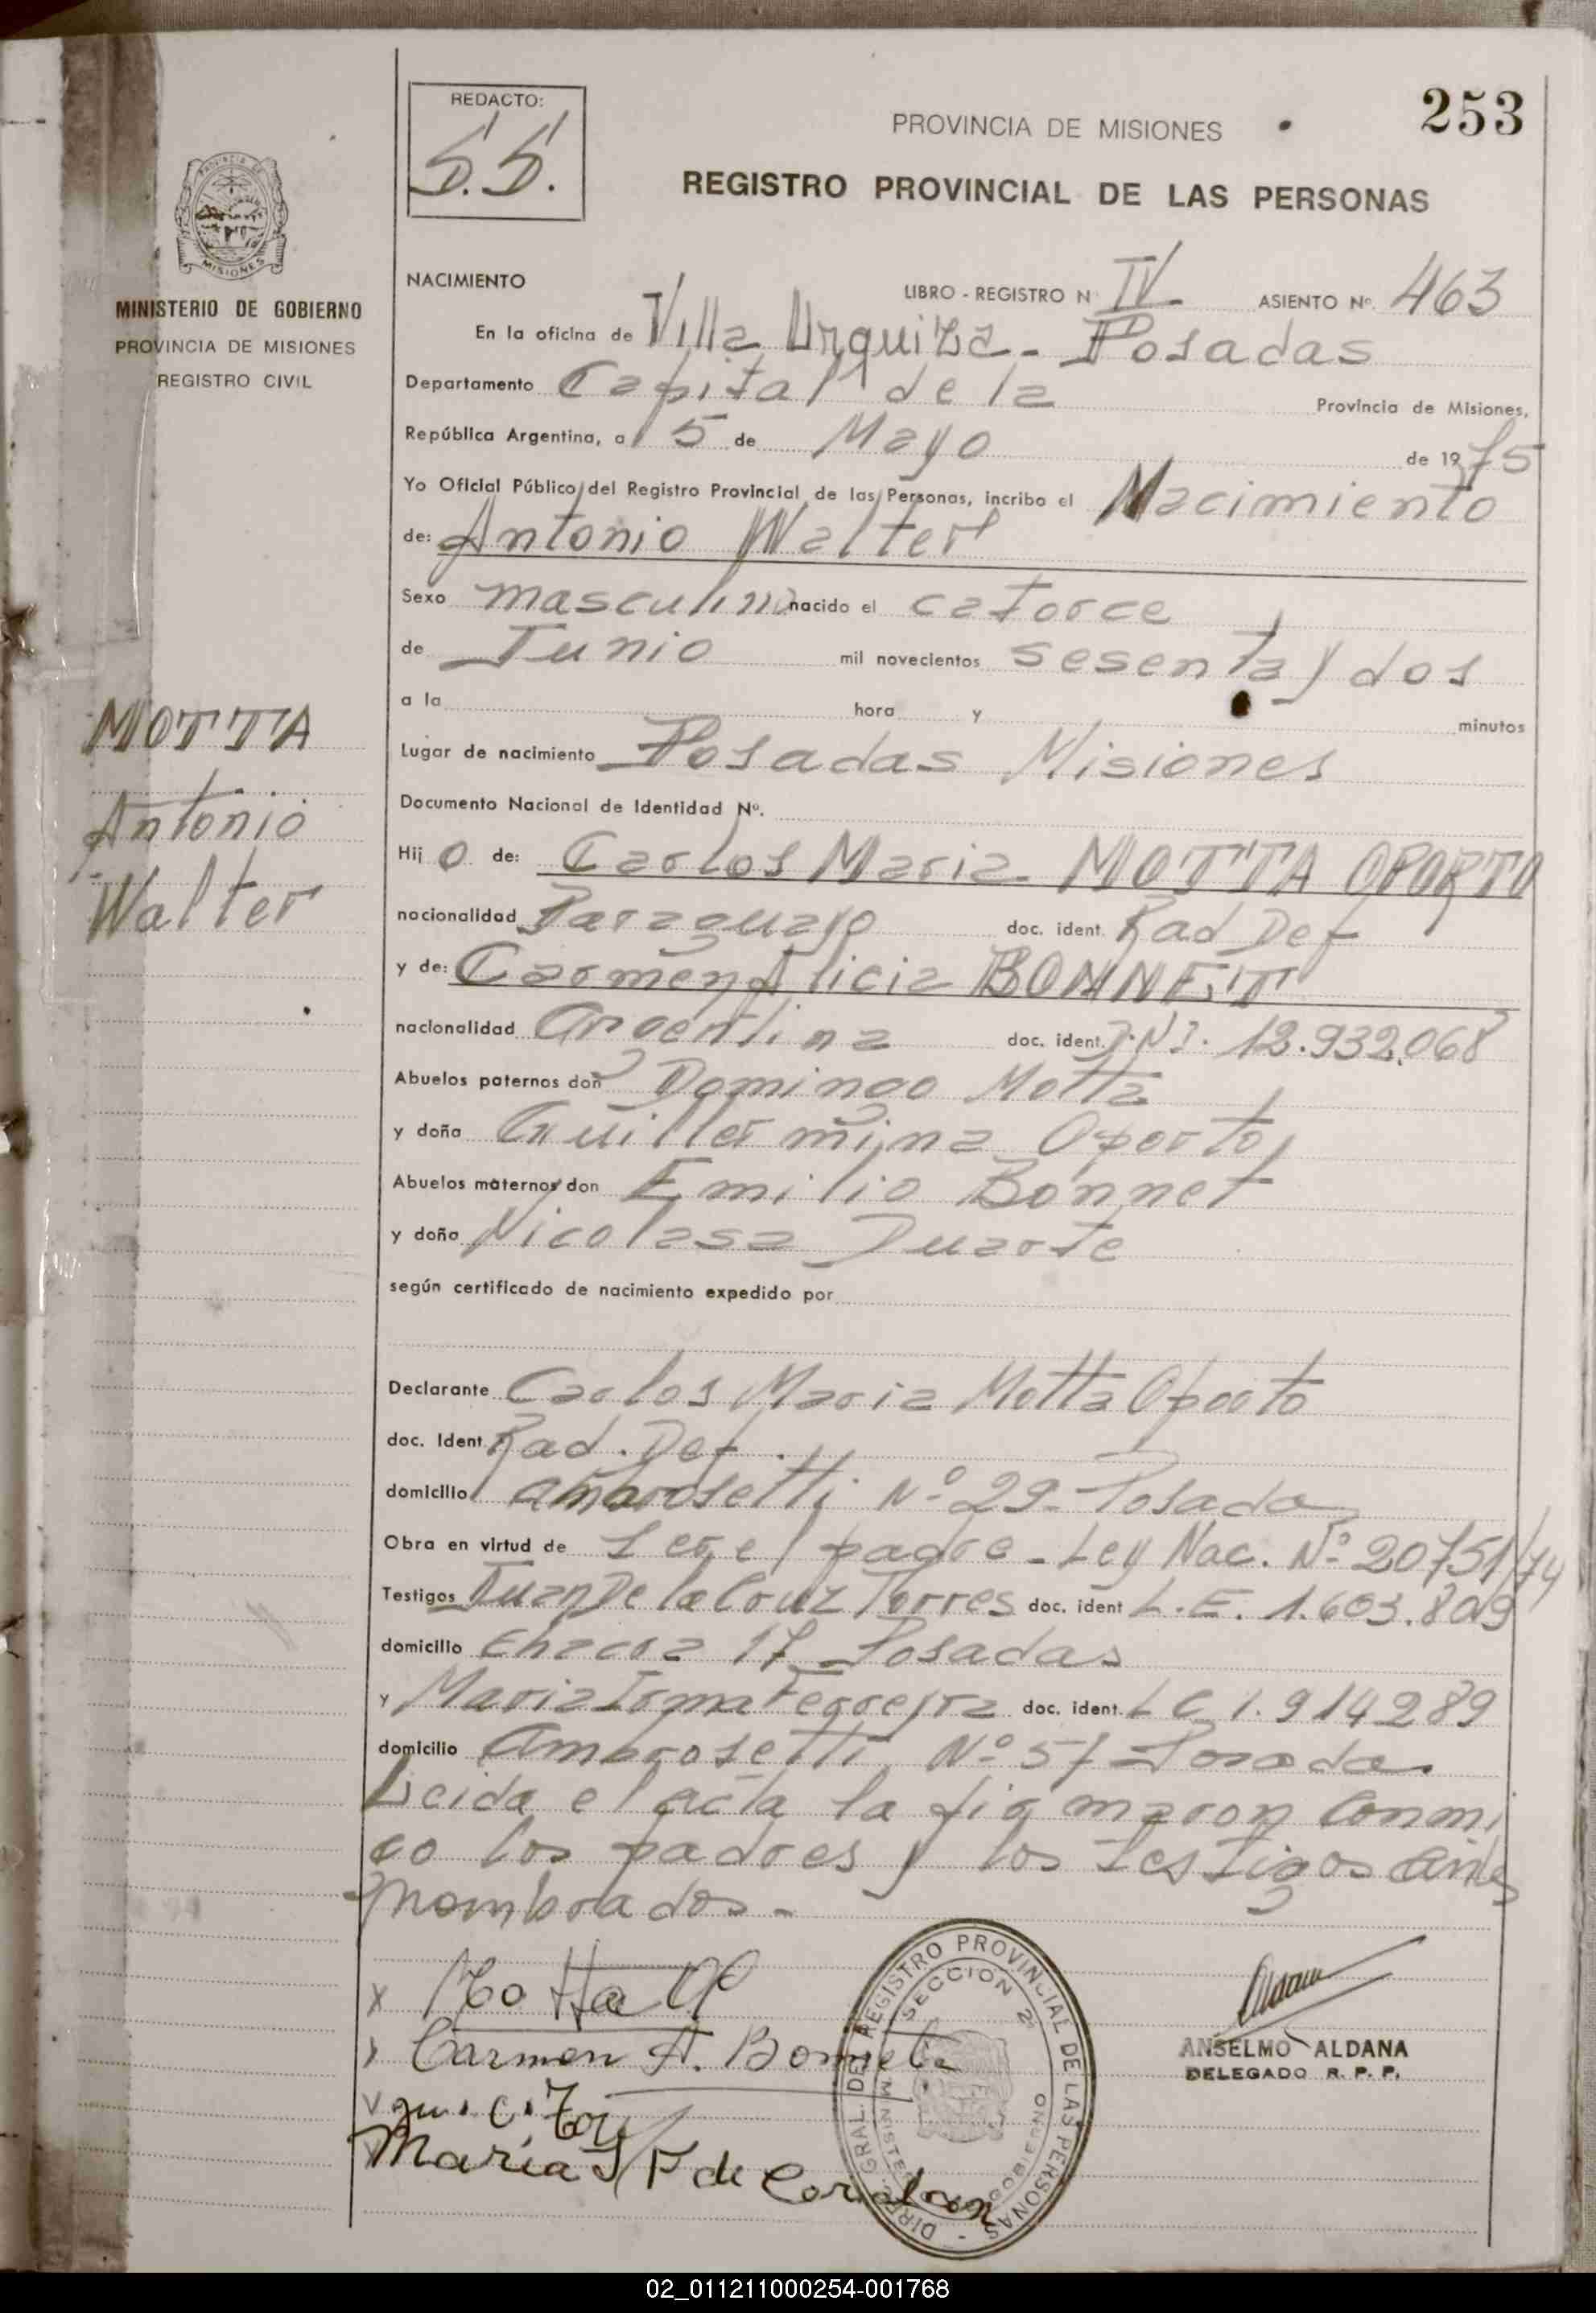 REDACTO:
S.S.
PROVINCIA DE MISIONES
253
REGISTRO PROVINCIAL DE LAS PERSONAS
PROVINCIA DE
MISIONES
MINISTERIO DE GOBIERNO
PROVINCIA DE MISIONES
REGISTRO CIVIL
MOTTA
Antonio
Walter
NACIMIENTO LIBRO - REGISTRO N IV - ASIENTO Nº. 463
En la oficina de Villa Urquiza - Posadas
Departamento Capital de la Provincia de Misiones,
República Argentina, a 5 de Mayo de 1975
Yo Oficial Público del Registro Provincial de las Personas, inscribo el Nacimiento
de: Antonio Walter
Sexo masculino nacido el catorce
de Junio mil novecientos sesenta y dos
a la hora y minutos
Lugar de nacimiento Posadas Misiones
Documento Nacional de Identidad Nº.
Hij o de: Carlos Maria MOTTA OPORTO
nacionalidad Paraguayo doc. ident. Rad Def
y de: Carmen Alicia BONNET
nacionalidad Argentina doc. ident. D.N.I. 12.932.068
Abuelos paternos don Domingo Motta
y doña Guillermina Oporto
Abuelos maternos don Emilio Bonnet
y doña Nicolasa Duarte
según certificado de nacimiento expedido por
Declarante Carlos Maria Motta Oporto
doc. Ident. Rad. Def.
domicilio Ambrosetti Nº 29 - Posadas
Obra en virtud de ser el padre - Ley Nac. Nº 20751/74
Testigos Juan De la Cruz Torres doc. ident L.E. 1.603.809
domicilio Chacra 17 Posadas
y Maria Irma Ferreyra doc. ident. L C 1.914289
domicilio Ambrosetti Nº 57 - Posadas
Leida el acta la firmaron conmi
go los padres y los testigos antes
nombrados -
x Motta
Carmen A. Bonnet
María I F de
DIREC. GRAL. DEL REGISTRO PROVINCIAL DE LAS PERSONAS -
SECCION 2ª
MINISTERIO DE GOBIERNO
ANSELMO ALDANA
DELEGADO R. P. P.
02_011211000254-001768